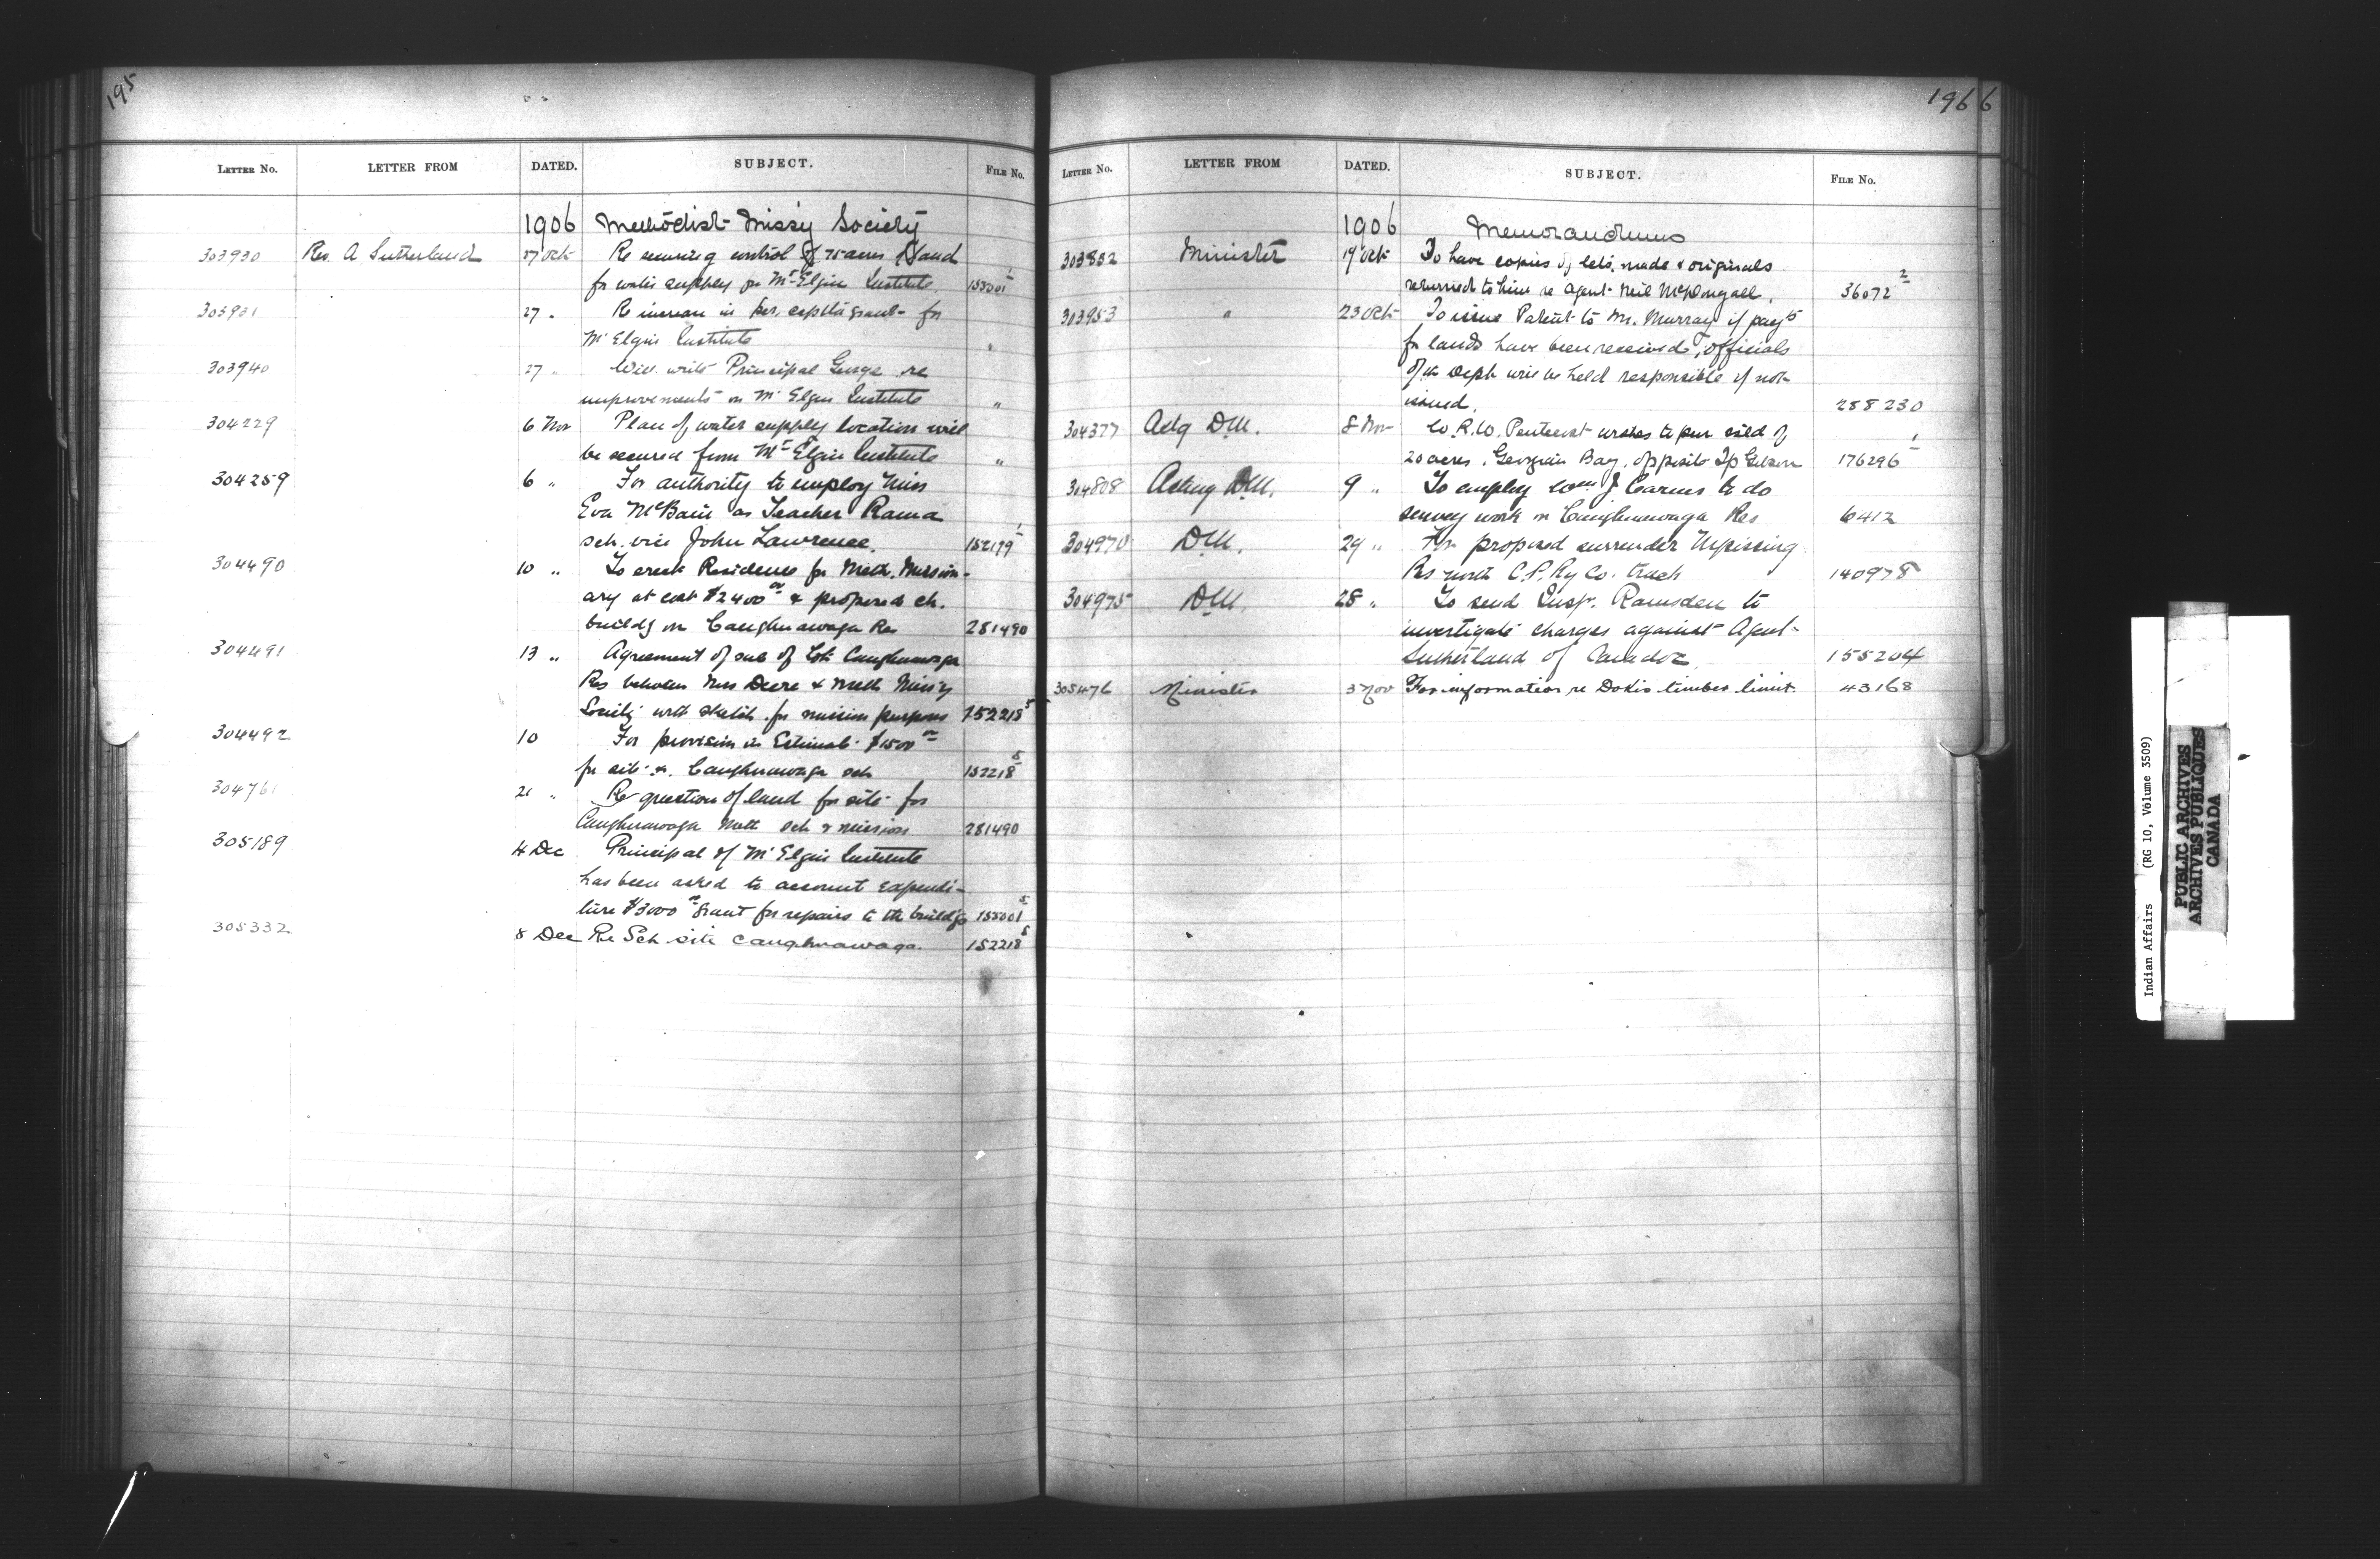 195
LETTER No. LETTER FROM DATED. SUBJECT. FILE No.
1906 Methodist Miss'y Society
303930 Rev. A. Sutherland 27 Oct Re securing control of 75 acres land
for water supply for Mt Elgin Institute. 155001
303931 27 " Re increase in per capita grant for
Mt Elgin Institute "
303940 27 " Will write Principal George re
improvements on Mt Elgin Institute "
304229 6 Nov Plan of water supply location will
be secured from Mt Elgin Institute "
304259 6 " For authority to employ Miss
Eva McBain as Teacher Rama
sch. vice John Lawrence. 152179
304490 10 " To erect Residence for Meth. Mission-
ary at cost $2400 00 & proposed ch.
buildg on Caughnawaga Res 281490
304491 13 " Agreement of sale of Lot Caughnawaga
Res between Mrs Deere & Meth Miss'y
Society with sketch for mission purposes 152218 5
304492 10 For provision in Estimate $1500 00
for site Caughnawaga sch 152218 5
304761 21 " Re question of land for site for
Caughnawaga Meth sch & mission 281490
305189 4 Dec Principal of Mt Elgin Institute
has been asked to account expendi-
ture $3000 00 grant for repairs to the buildgs 155001
305332 8 Dec Re Sch site Caughnawaga. 152218 5
196 6
LETTER No. LETTER FROM DATED. SUBJECT. FILE No.
1906 Memorandums
303832 Minister 19 Oct To have copies of lets. made & originals
returned to him re Agent Neil McDougall. 36072 2
303953 " 23 Oct To issue Patent to Mr. Murray if payts
for lands have been received, officials
of the Dept will be held responsible if not
issued. 288230
304377 Actg D.M. 8 Nov W.R.W. wishes to pur isld of
20 acres, Georgian Bay, opposite Tp Gibson 176296
304808 Acting D.M. 9 " To employ Wm J to do
survey work on Caughnawaga Res 6412
304970 D.M. 29 " proposed surrender Nipissing
Res north C.P. Ry Co. track 140978
304975 D.M. 28 " To send Insp. Ramsden to
investigate charges against Agent
Sutherland of Caradoc 155204
305476 Minister 3 Nov For information re Dokis timber limit. 43168
Indian Affairs (RG 10, Volume 3509)
PUBLIC ARCHIVES
ARCHIVES PUBLIQUES
CANADA